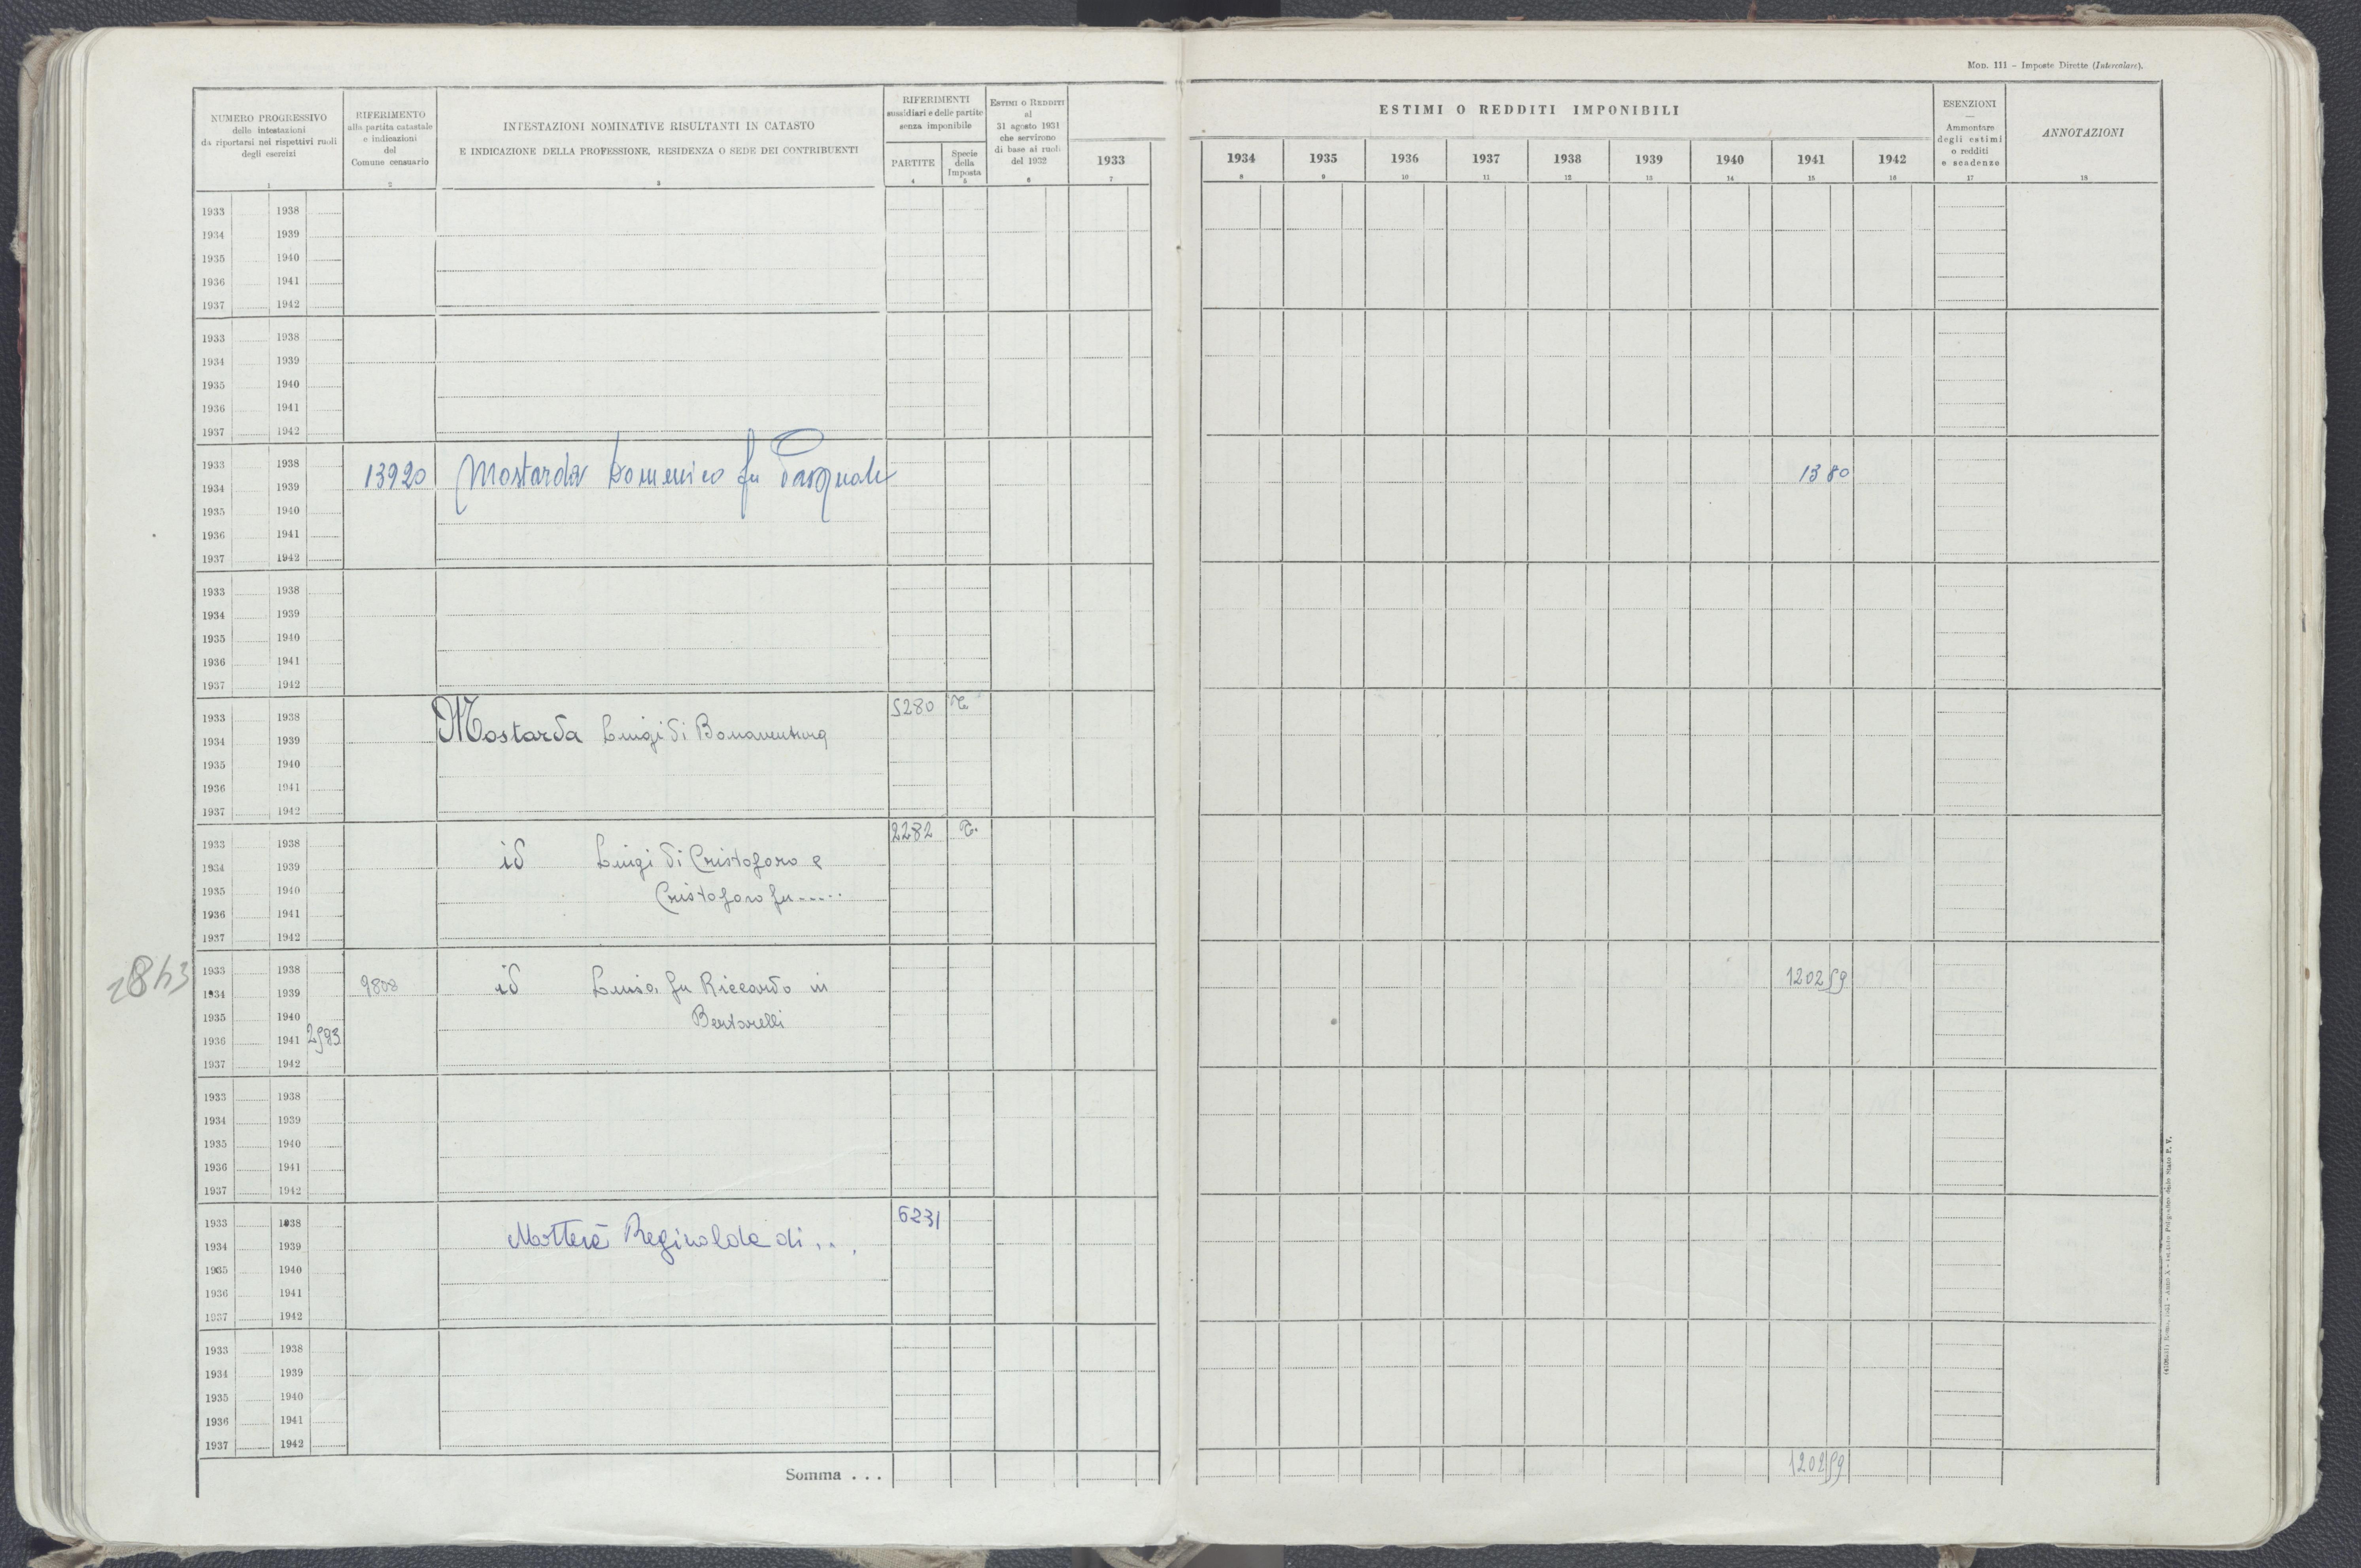 Mod. 111 – Imposte Dirette (Intercalare).
NUMERO PROGRESSIVO
delle intestazioni
da riportarsi nei rispettivi ruoli
degli esercizi
RIFERIMENTO
alla partita catastale
e indicazioni
del
Comune censuario
INTESTAZIONI NOMINATIVE RISULTANTI IN CATASTO
E INDICAZIONE DELLA PROFESSIONE, RESIDENZA O SEDE DEI CONTRIBUENTI
RIFERIMENTI
sussidiari e delle partite
senza imponibile
PARTITE
Specie
della
Imposta
ESTIMI O REDDITI
al
31 agosto 1931
che servirono
di base ai ruoli
del 1932
1933
ESTIMI O REDDITI IMPONIBILI
1934 1935 1936 1937 1938 1939 1940 1941 1942
ESENZIONI
—
Ammontare
degli estimi
o redditi
e scadenze
ANNOTAZIONI
1 2 3 4 5 6 7 8 9 10 11 12 13 14 15 16 17 18
1933 1938
1934 1939
1935 1940
1936 1941
1937 1942
1933 1938
1934 1939
1935 1940
1936 1941
1937 1942
1933 1938
13920 Mostarda Domenico fu Pasquale 13 80
1934 1939
1935 1940
1936 1941
1937 1942
1933 1938
1934 1939
1935 1940
1936 1941
1937 1942
5280 T
1933 1938
1934 1939 Mostarda Luigi di Bonaventura
1935 1940
1936 1941
1937 1942
2282 T.
1933 1938
1934 1939 id Luigi di Cristoforo e
1935 1940 Cristoforo fu.....
1936 1941
1937 1942
2843
1933 1938
1934 1939 9808 id Luisa fu Riccardo in 1202 59
1935 1940 Bertarelli
1936 1941 2593
1937 1942
1933 1938
1934 1939
1935 1940
1936 1941
1937 1942
1933 1938 6231
1934 1939 Reginalda di...
1935 1940
1936 1941
1937 1942
1933 1938
1934 1939
1935 1940
1936 1941
1937 1942
Somma . . . 1202 59